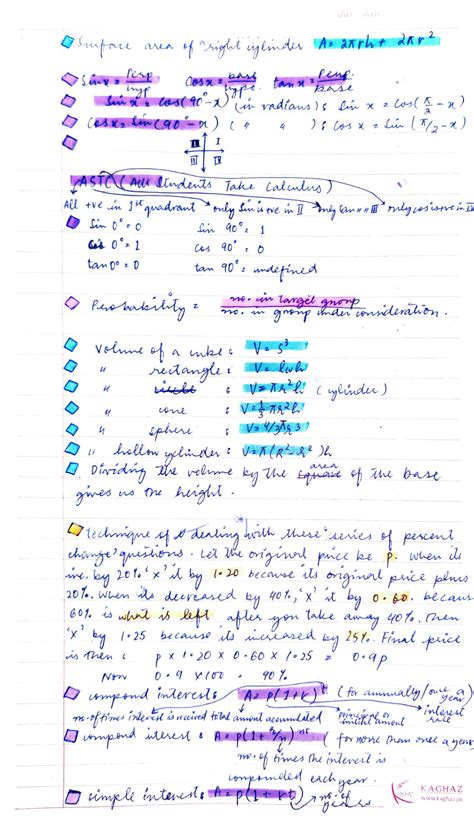 Surface area of right cylinder A = 2πrh + 2πr²
Sin x = Perp/hyp Cos x = base/hyp. tan x = Perp./base
Sin x = cos(90°-x) (in radians): Sin x = Cos(π/2 - x)
Cos x = Sin (90°-x) ( " " ): Cos x = Sin (π/2 - x)
II I
III IV
ASTC (All Students Take Calculus)
All +ve in 1st quadrant only Sin is +ve in II only tan " " III only cos is +ve in IV
Sin 0° = 0 Sin 90° = 1
Cos 0° = 1 Cos 90° = 0
tan 0° = 0 tan 90° = undefined
Probability = no. in target group / no. in group under consideration.
Volume of a cube: V = s³
" rectangle: V = lwh
" circle : V = πr²h (cylinder)
" cone : V = 1/3 πr²h
" sphere : V = 4/3 πr³
" hollow cylinder: V = π(R² - r²)h
Dividing the volume by the area of the base
gives us the height.
Technique of dealing with these 'series of percent
change' questions. Let the original price be p. when its
inc. by 20% 'x' it by 1.20 because its original price plus
20%. When its decreased by 40%, 'x' it by 0.60. because
60% is what is left after you take away 40%. Then
'x' by 1.25 because its increased by 25%. Final price
is then: p x 1.20 x 0.60 x 1.25 = 0.9p
Now 0.9 x 100 = 90%
compound interest: A = P(1+r)ᵗ (for annually/once a year)
no. of times interest is total amount accumulated principal or initial amount interest rate
compound interest: A = P(1+r/n)ⁿᵗ (for more than once a year)
no. of times the interest is
compounded each year.
simple interest: A = P(1 + rt) no. of years
KAGHAZ
www.kaghaz.pk